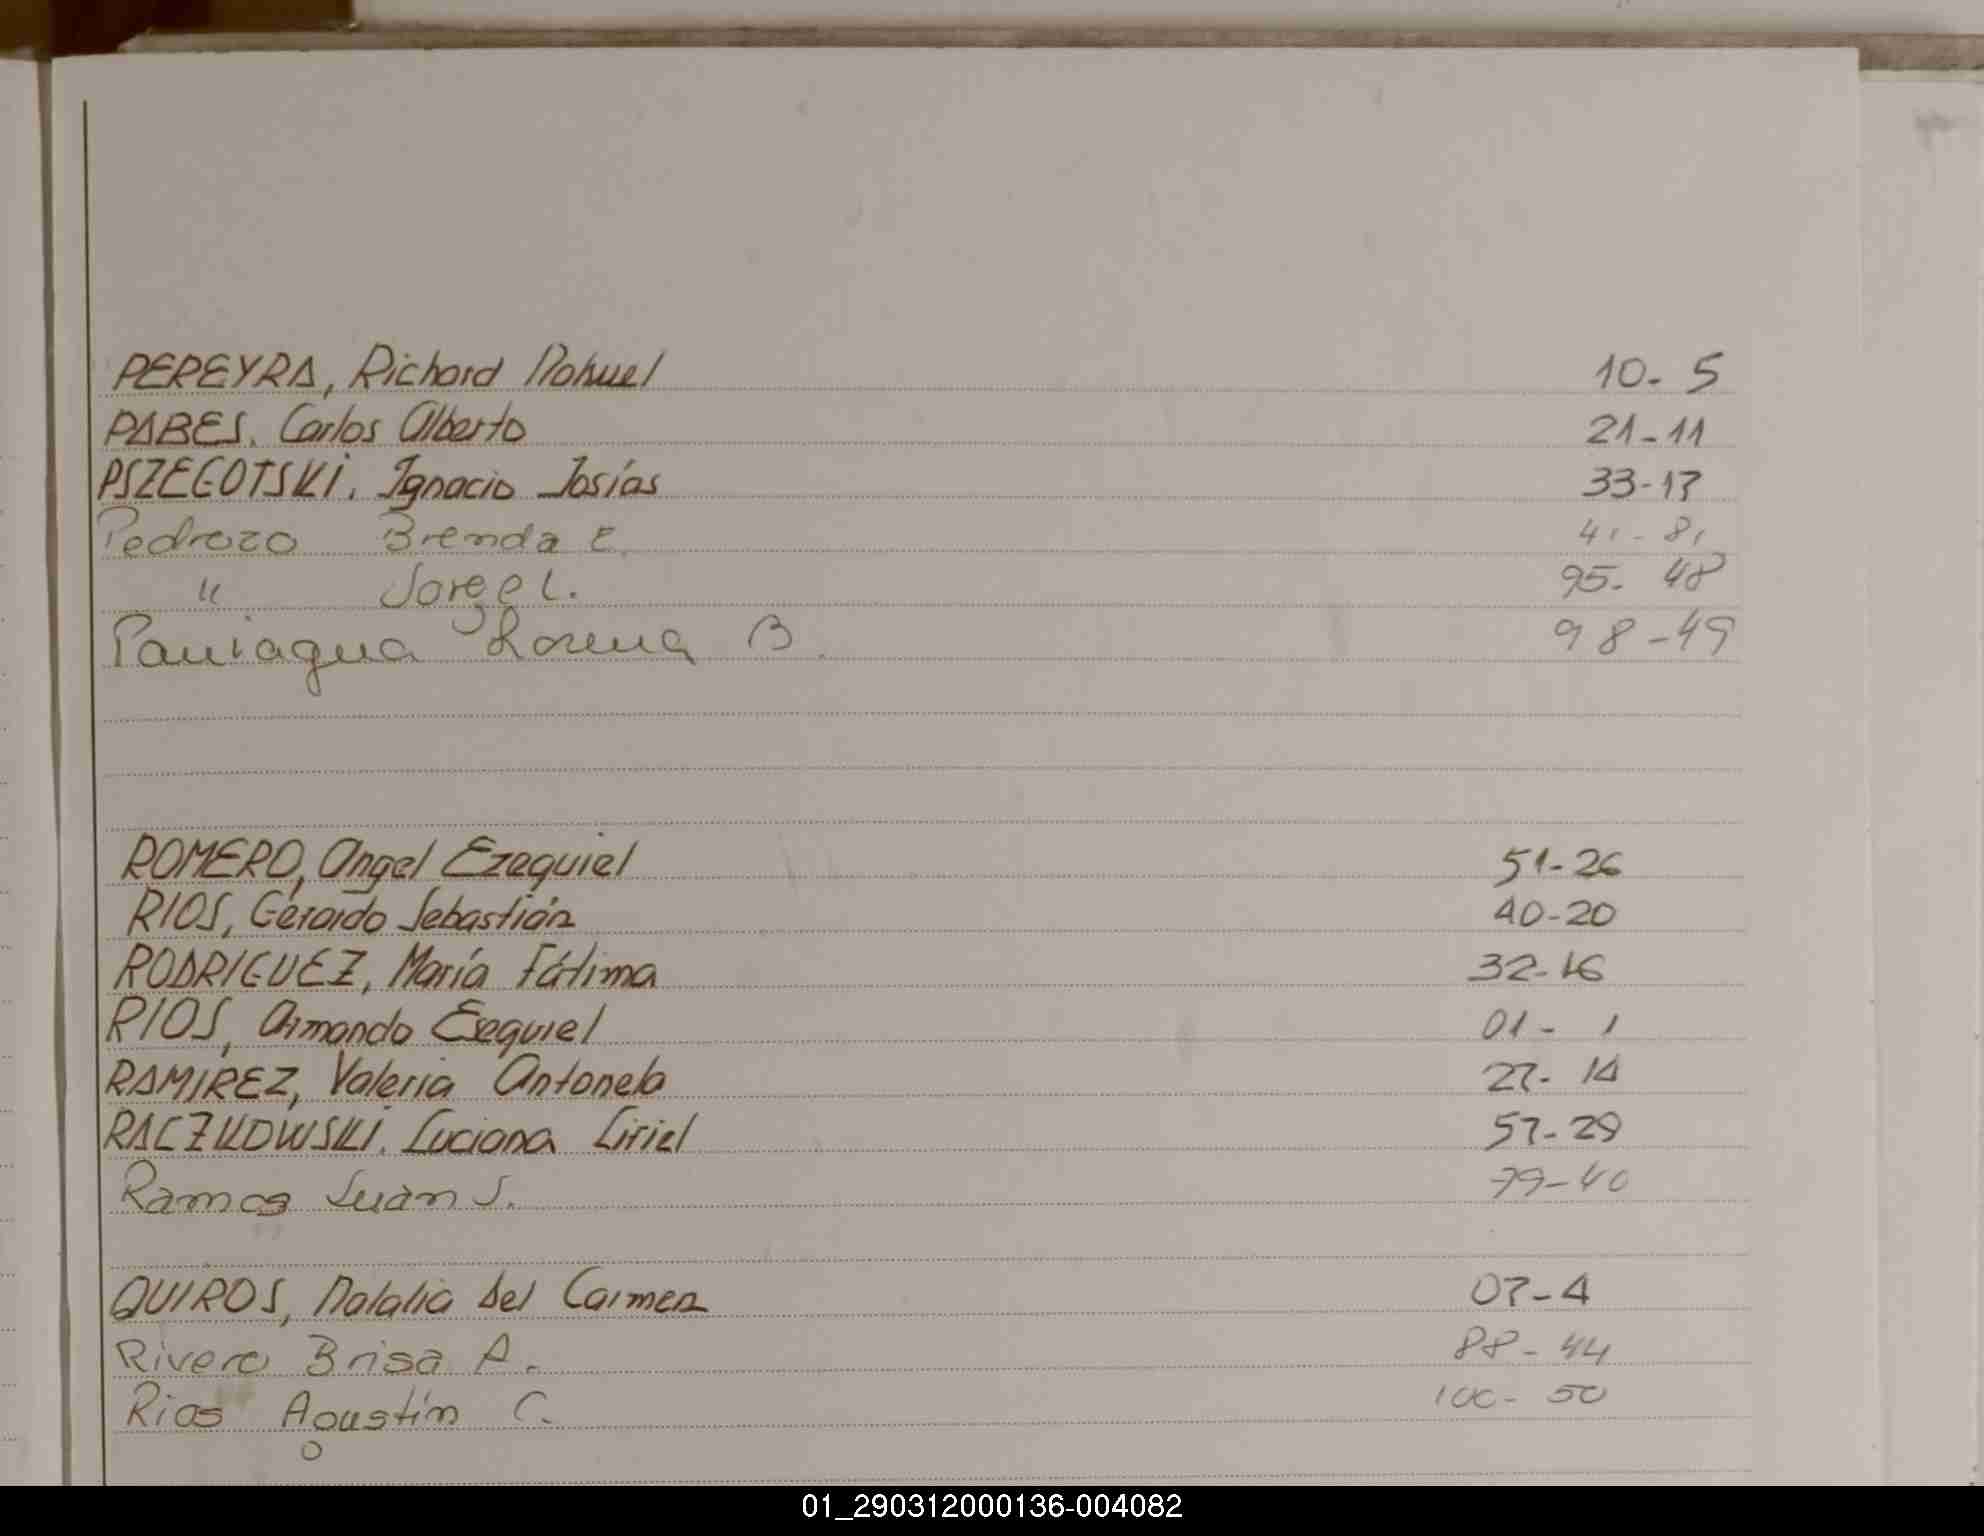 PEREYRA, Richard Nahuel 10-5
PABES, Carlos Alberto 21-11
PSZEGOTSKI, Ignacio Josías 33-17
Pedrozo Brenda E. 41-81
" Jorge L. 95-48
Paniagua Lorena B. 98-49
ROMERO, Angel Ezequiel 51-26
RIOS, Gerardo Sebastián 40-20
RODRIGUEZ, María Fátima 32-16
RIOS, Armando Esequiel 01-1
RAMIREZ, Valeria Antonela 27-14
RACZKOWSKI, Luciana Liriel 57-29
Ramos Juan J. 79-40
QUIROS, Natalia del Carmen 07-4
Rivero Brisa A. 88-44
Rios Agustín C. 100-50
01_290312000136-004082